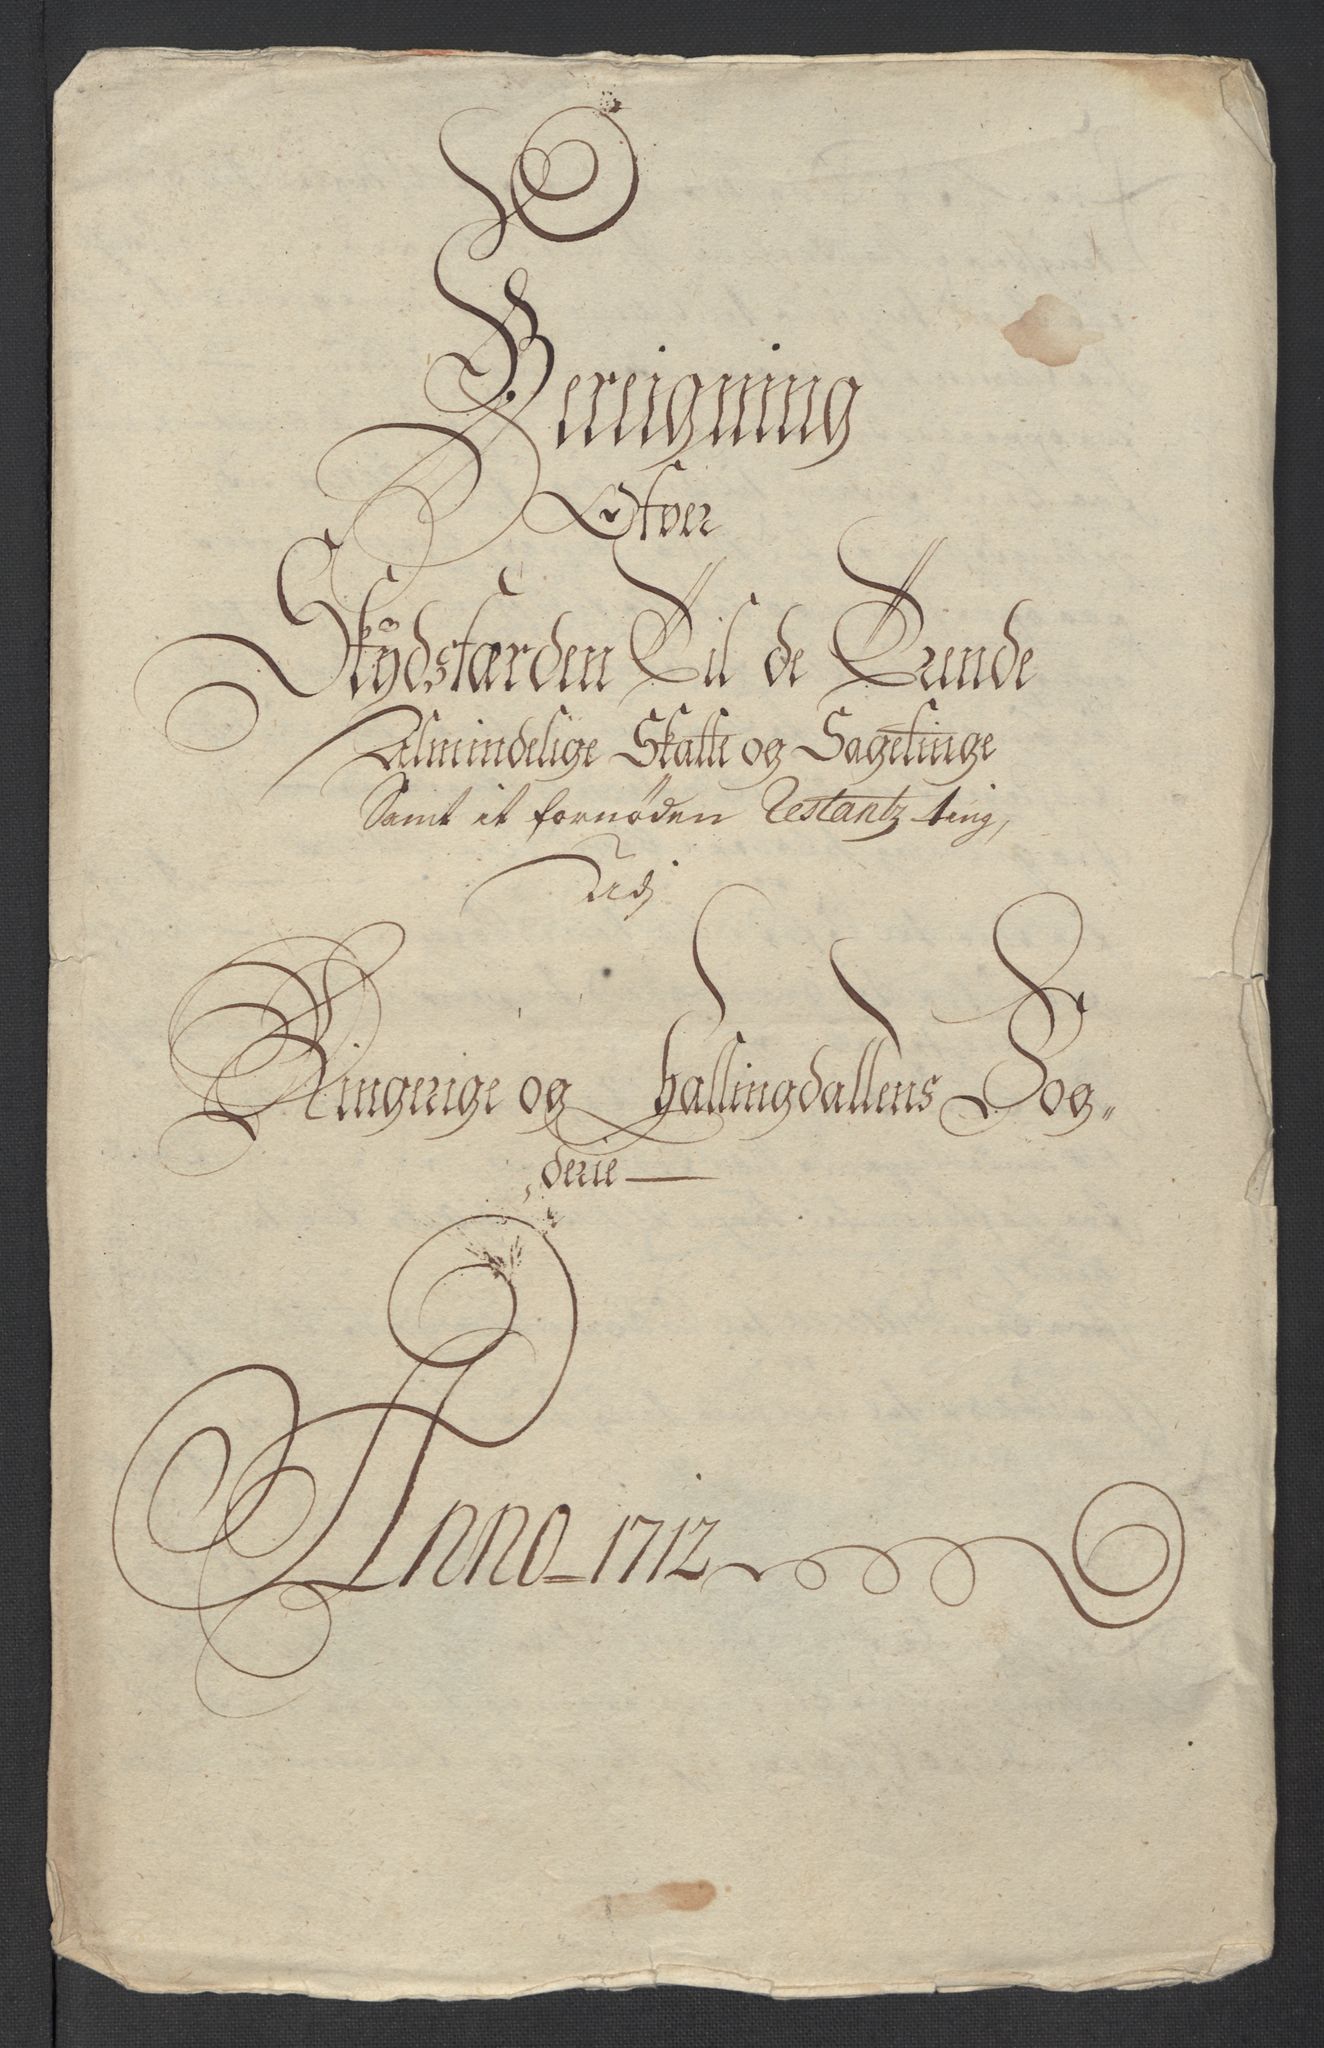 Bereigning
Ofver
Skydsfærden Til de Trende
Almindelige Skatte og Sagetinge
Samt it fornøden Restantz ting,
Udj
Ringerige og Hallingdallens Fog„
„derie
Anno 1712